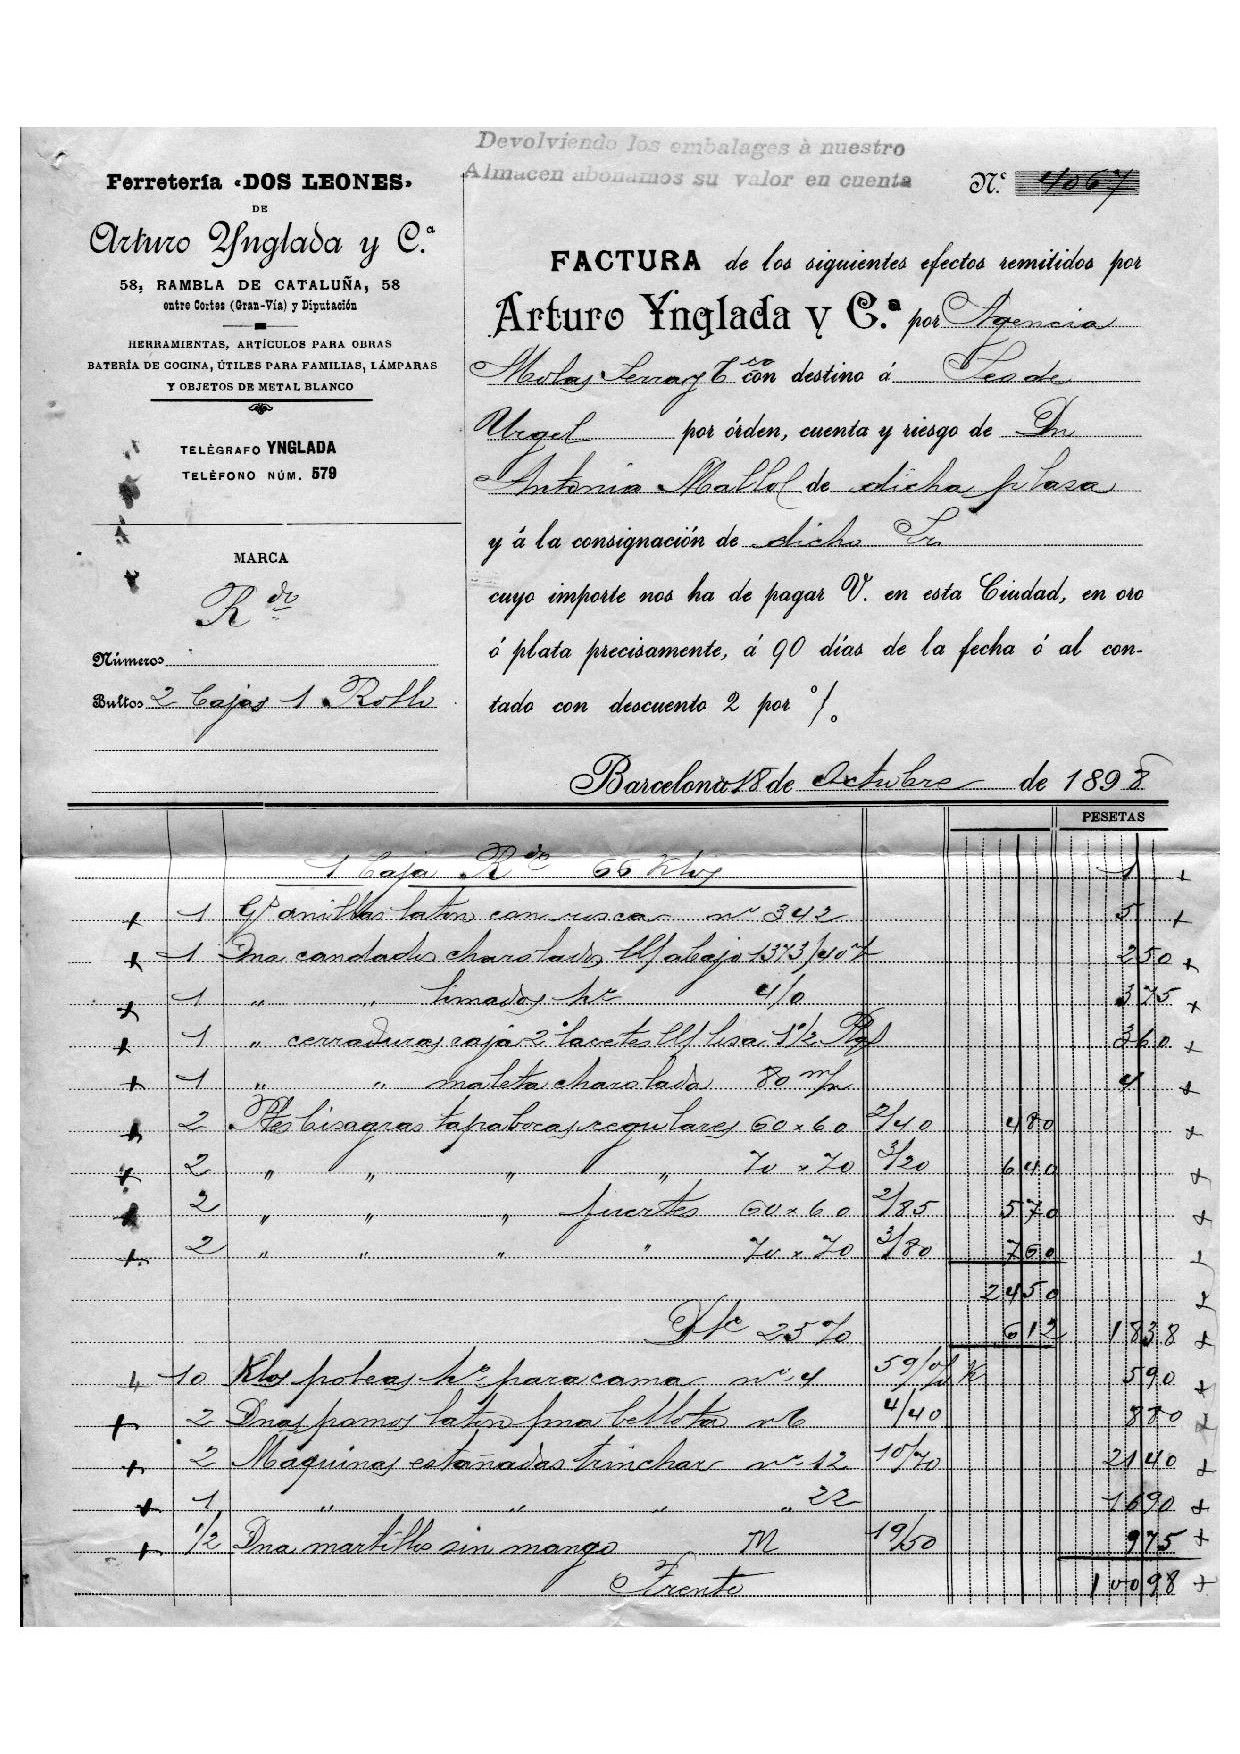 Devolviendo los embalages à nuestro
Almacen abonamos su valor en cuenta
Ferretería «DOS LEONES»
DE
Arturo Ynglada y C.ª
58, RAMBLA DE CATALUÑA, 58
entre Cortes (Gran-Vía) y Diputación
HERRAMIENTAS, ARTÍCULOS PARA OBRAS
BATERÍA DE COCINA, ÚTILES PARA FAMILIAS, LÁMPARAS
Y OBJETOS DE METAL BLANCO
TELÉGRAFO YNGLADA
TELÉFONO NÚM. 579
MARCA
R do
Números
Bultos 2 Cajas 1 Rollo
N.º 4067
FACTURA de los siguientes efectos remitidos por
Arturo Ynglada y C.ª por Agencia
Molas Serra y C con destino á Seo de
Urgel por órden, cuenta y riesgo de Dn
Antonio Mallol de dicha plasa
y á la consignación de dicho Sr
cuyo importe nos ha de pagar V. en esta Ciudad, en oro
ó plata precisamente, á 90 días de la fecha ó al con-
tado con descuento 2 por %
Barcelona 18 de Octubre de 1898
PESETAS
1 Caja R do 66 Klos 1
1 Gª anillas laton con rosca nº 342 5
1 Dna candados charolados abajo 1373/40 250
1 " " limados hº 4/0 375
1 " cerraduras caja 2 lacetes lisa 1 1/2 360
1 " " maleta charolada 80 m/m 4
2 bisagras tapabocas regulares 60 x 60 2/40 480
2 " " " " 70 x 70 3/20 640
2 " " " fuertes 60 x 60 2/85 570
2 " " " " 70 x 70 3/80 760
2450
25 % 612 1838
10 Klos poleas hº para cama nº 4 59/0 K 590
2 Dnas pomos laton fma bellota nº 6 4/40 880
2 Maquinas estañadas trinchar nº 12 10/70 2140
1 " " " " 22 1690
1/2 Dna martillos sin mango M 19/50 975
Frente 10098